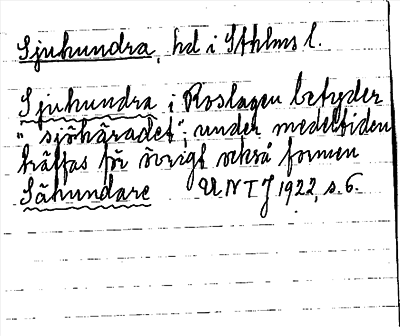 Sjuhundra, hd i Sthlms l.
Sjuhundra i Roslagen betyder
"sjöhäradet"; under medeltiden
träffas för övrigt också formen
Sähundare UNTJ 1922, s. 6.